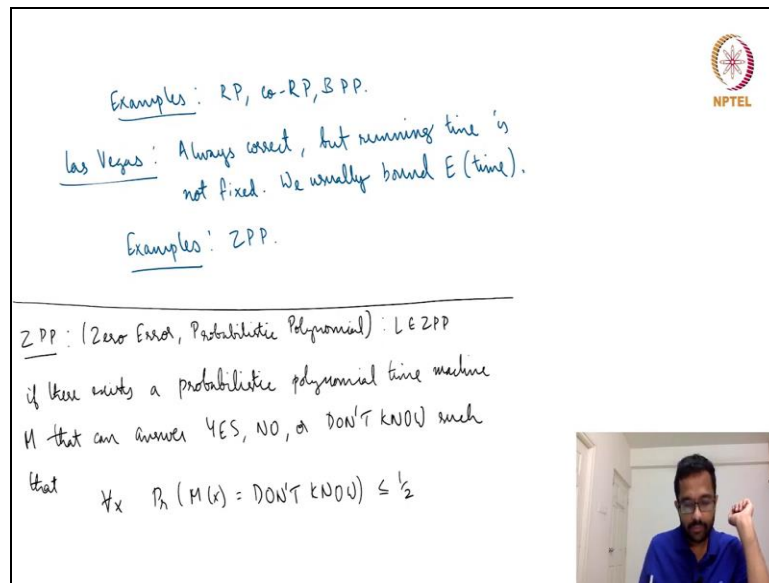 NPTEL
Examples: RP, co-RP, BPP.
Las Vegas: Always correct, but running time is
not fixed. We usually bound E(time).
Examples: ZPP.
ZPP: (Zero Error, Probabilistic Polynomial): L∈ZPP
if there exists a probabilistic polynomial time machine
M that can answer YES, NO, or DON'T KNOW such
that ∀x Pr (M(x) = DON'T KNOW) ≤ 1/2